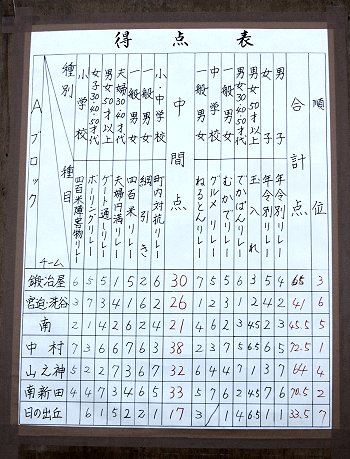 得点表
種別
種目
Aブロック
チーム
小学校
四百米障害物リレー
女子30・40・50才代
ボーリングリレー
男女50才以上
ゲート通しリレー
夫婦30・40才代
夫婦円満リレー
一般男女
四百米リレー
一般男女
綱引き
小・中学校
町内対抗リレー
中間点
一般男女
ねるとんリレー
中学校
グルメリレー
一般男女
むかでリレー
男女30・40才代
でかぱんリレー
男女50才以上
玉入れ
女子
年令別リレー
男子
年令別リレー
合計点
順位
鍛冶屋 6 5 5 1 5 2 6 30 7 5 5 6 3 5 4 65 3
宮迫・洗谷 3 7 3 4 1 6 2 26 1 2 3 1 2 4 2 41 6
南 2 1 4 2 6 2 4 21 4 6 2 3 4.5 2 3 45.5 5
中村 7 3 6 6 7 6 3 38 2 3 7 5 6 5 6 72.5 1
山之神 5 2 2 7 3 6 7 32 6 4 4 7 1 3 7 64 4
南新田 4 4 7 3 4 6 5 33 5 7 6 2 4.5 7 6 70.5 2
日の出丘 6 1 5 2 2 1 17 3 / 1 4 6.5 1 1 33.5 7